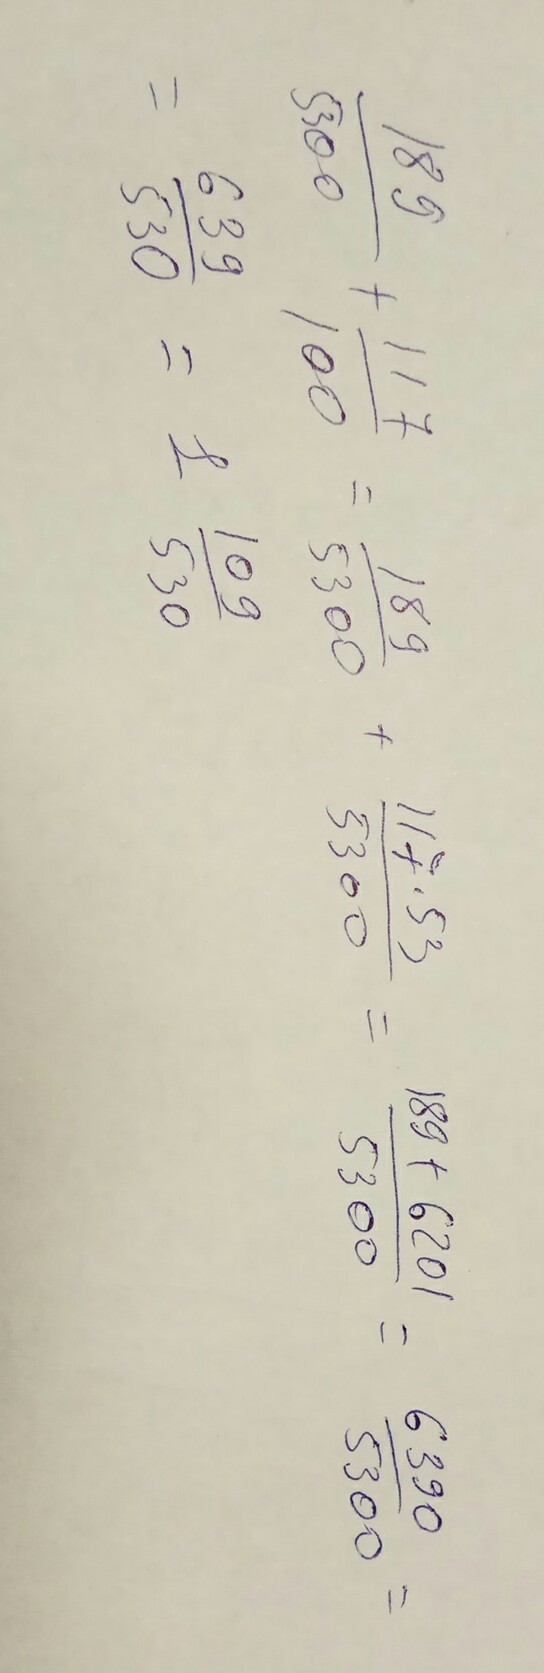 189/5300 + 117/100 = 189/5300 + 117·53/5300 = 189+6201/5300 = 6390/5300 =
= 639/530 = 1 109/530